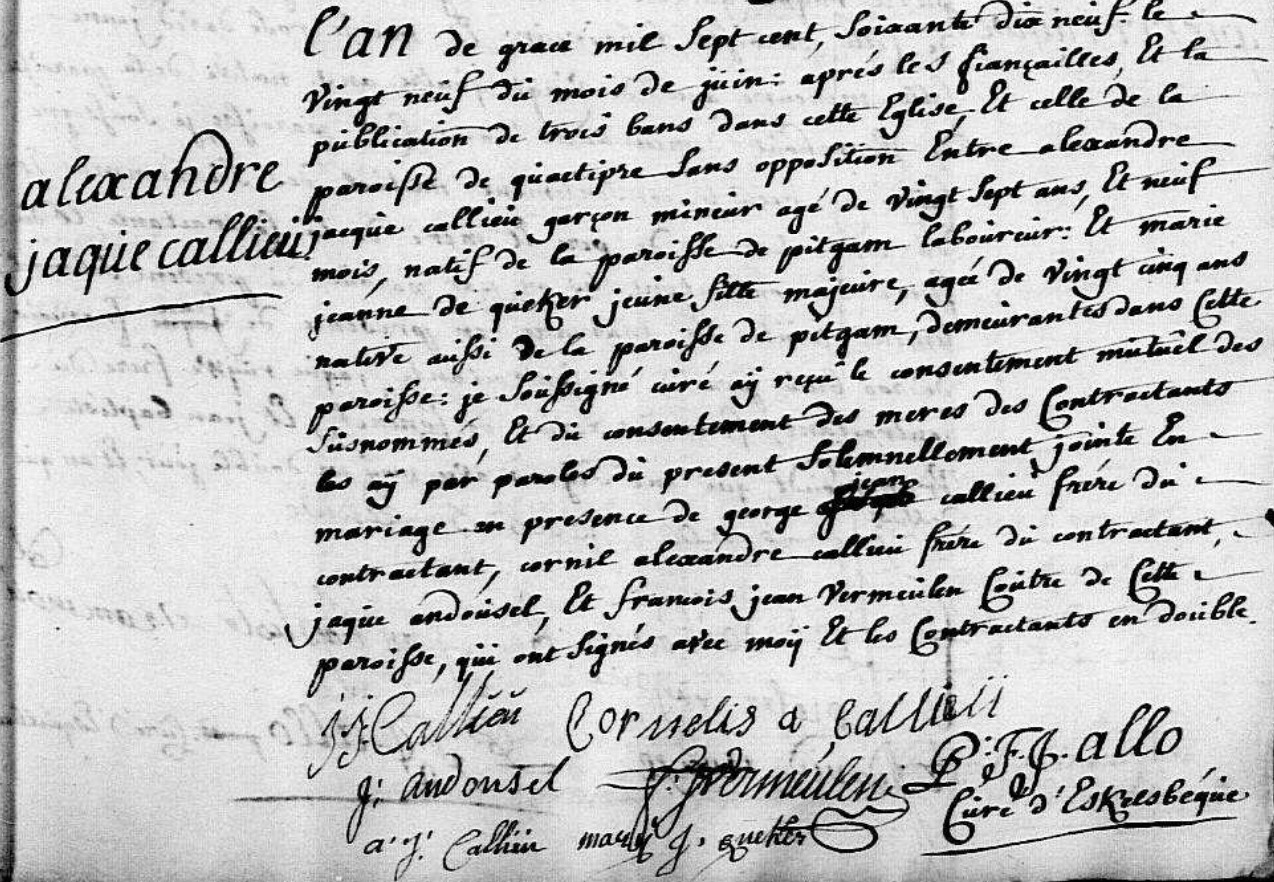 alexandre
jaque callieu
l'an de grace mil sept cent, soixante dix neuf. le
vingt neuf du mois de juin: aprés les fiançailles, Et la
publication de trois bans dans cette Eglise, Et celle de la
paroisse de quaetipre sans opposition Entre alexandre
jacque callieu garçon mineur agé de vingt sept ans, Et neuf
mois, natif de la paroisse de pitgam laboureur: Et marie
jeanne de queker jeune fille majeure, ageé de vingt cinq ans
native aussi de la paroisse de pitgam, demeurantes dans Cette
paroisse: je soussigné curé aÿ reçu le consentement mutuel des
susnommés, Et du consentement des meres des Contractants
les aÿ par paroles du present solemnellement jointe En
mariage en presence de george jean callieu frére du
contractant, cornil alexandre callieu frére du contractant,
jaque andousel, Et francois jean Vermeulen Coutre de Cette
paroisse, qui ont signés avec moÿ Et les Contractants en double.
Callieu Cornelis a Callieu
j: andousel f: j vermeulen P: F: J. allo
Curé d'Eskelsbéque
a: j: Callieu marie j. queker